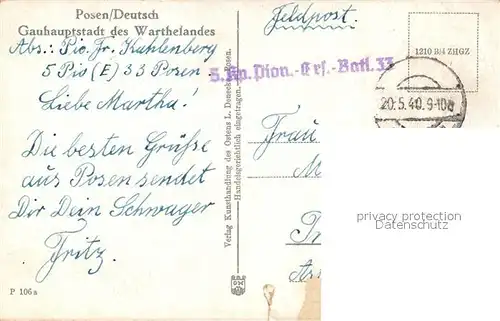 Posen/Deutsch
Gauhauptstadt des Warthelandes
Abs.: Pio. Fr. Kuhlenberg
5 Pio (E) 33 Posen
Liebe Martha!
Die besten Grüße
aus Posen sendet
Dir Dein Schwager
Fritz.
P 106a
Verlag Kunsthandlung des Ostens L. Denecke, Posen.
Handelsgerichtlich eingetragen.
Feldpost.
5. Kp. Pion.-Ers.-Batl. 33
1210 B/4 ZHGZ
20.5.40.9-10
Frau
privacy protection
Datenschutz